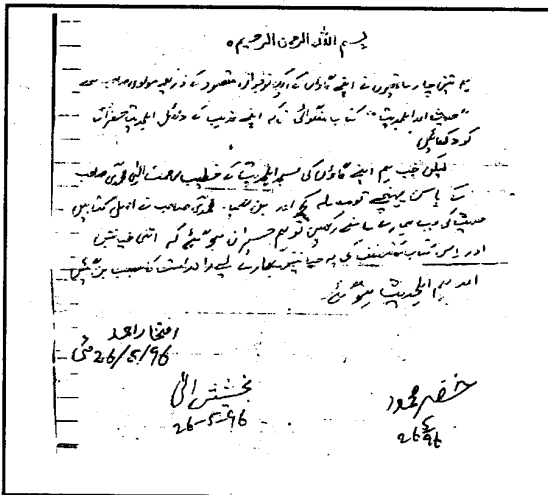 بسم اللہ الرحمن الرحیم
ہم تین چار ساتھیوں نے اپنے گاؤں کے مقصود کے ذریعہ مولوی صاحب سے
حدیث اور اہلحدیث کتاب منگوائی تاکہ اپنے مذہب کے دلائل اہلحدیث حضرات
کو دکھائیں
لیکن جب ہم اپنے گاؤں کی مسجد اہلحدیث کے خطیب رحمت الہی صاحب
کے پاس پہنچے تو معاملہ کچھ اور بن گیا۔ صاحب نے اصل کتابیں
حدیث کی جب ہمارے سامنے رکھیں تو ہم حیران ہو گئے کہ اتنی خیانتیں
اور اس کتاب کے مصنف کی یہ خیانتیں ہمارے لیے راہ راست کا سبب بن گئیں
اور ہم اہلحدیث ہو گئے۔
افتخار احمد
26/5/96 مئی
بخشش الہی
26-5-96
خضر محمود
26/5/96